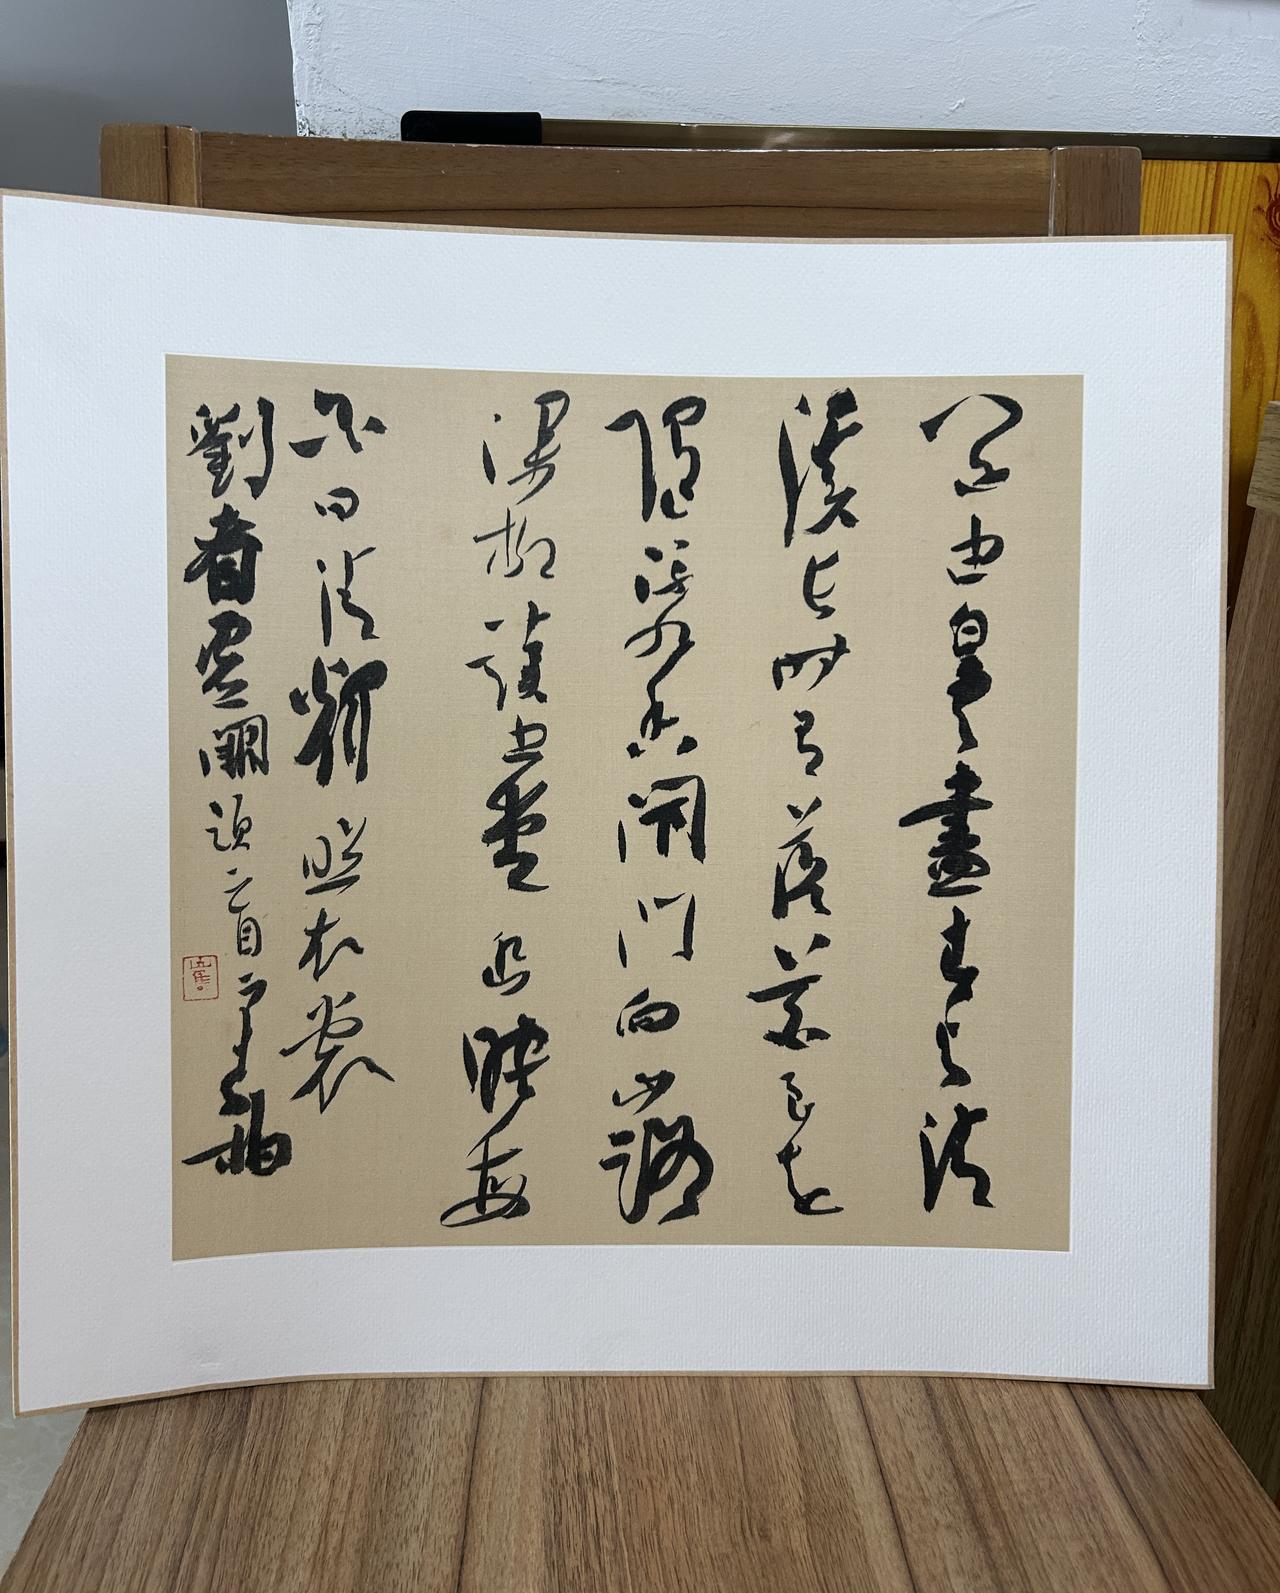 道由白雲盡春與清
溪長時有落花至遠
隨流水香閑門向山路
深柳讀書堂幽映每
日清輝照衣裳
劉眘虛闕題一首